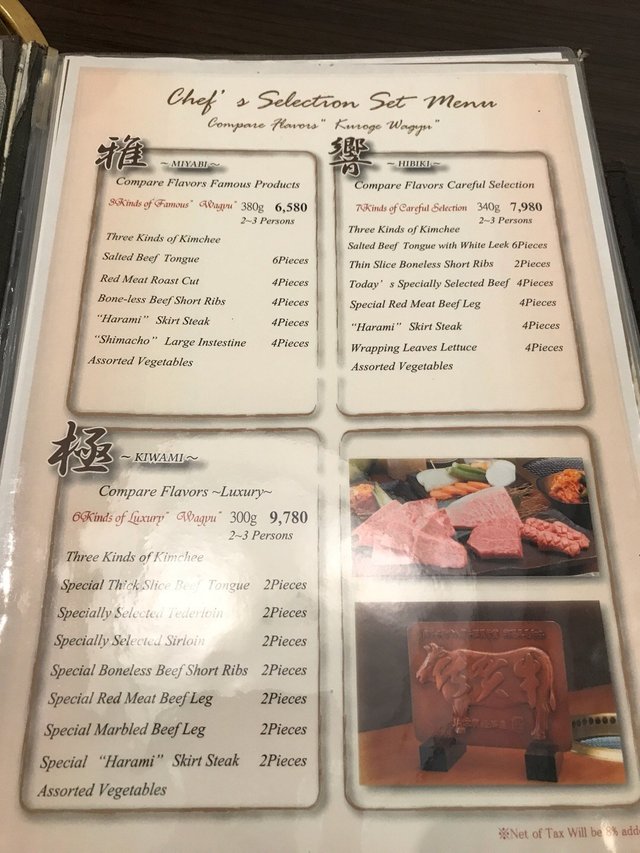 Chef's Selection Set Menu
Compare Flavors" Kuroge Wagyu"
雅
~ MIYABI ~
Compare Flavors Famous Products
8Kinds of Famous" Wagyu" 380g 6,580
2~3 Persons
Three Kinds of Kimchee
Salted Beef Tongue 6Pieces
Red Meat Roast Cut 4Pieces
Bone-less Beef Short Ribs 4Pieces
"Harami" Skirt Steak 4Pieces
"Shimacho" Large Instestine 4Pieces
Assorted Vegetables
響
~ HIBIKI ~
Compare Flavors Careful Selection
7Kinds of Careful Selection 340g 7,980
2~3 Persons
Three Kinds of Kimchee
Salted Beef Tongue with White Leek 6Pieces
Thin Slice Boneless Short Ribs 2Pieces
Today's Specially Selected Beef 4Pieces
Special Red Meat Beef Leg 4Pieces
"Harami" Skirt Steak 4Pieces
Wrapping Leaves Lettuce 4Pieces
Assorted Vegetables
極
~ KIWAMI ~
Compare Flavors ~Luxury~
6Kinds of Luxury" Wagyu" 300g 9,780
2~3 Persons
Three Kinds of Kimchee
Special Thick Slice Beef Tongue 2Pieces
Specially Selected Tederloin 2Pieces
Specially Selected Sirloin 2Pieces
Special Boneless Beef Short Ribs 2Pieces
Special Red Meat Beef Leg 2Pieces
Special Marbled Beef Leg 2Pieces
Special "Harami" Skirt Steak 2Pieces
Assorted Vegetables
※Net of Tax Will be 8% adde